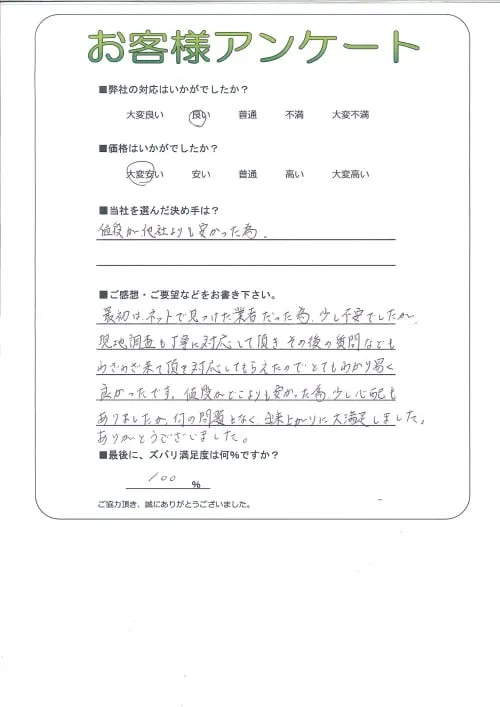 お客様アンケート
■弊社の対応はいかがでしたか？
大変良い 良い 普通 不満 大変不満
■価格はいかがでしたか？
大変安い 安い 普通 高い 大変高い
■当社を選んだ決め手は？
値段が他社よりも安かった為.
■ご感想・ご要望などをお書き下さい。
最初は、ネットで見つけた業者だった為、少し不安でしたが、
現地調査も丁寧に対応して頂き その後の質問なども
わざわざ来て頂き対応してもらえたのでとてもわかり易く
良かったです。値段がどこよりも安かった為、少し心配も
ありましたが、何の問題となく、出来上がりに大満足しました。
ありがとうございました。
■最後に、ズバリ満足度は何%ですか？
100 %
ご協力頂き、誠にありがとうございました。